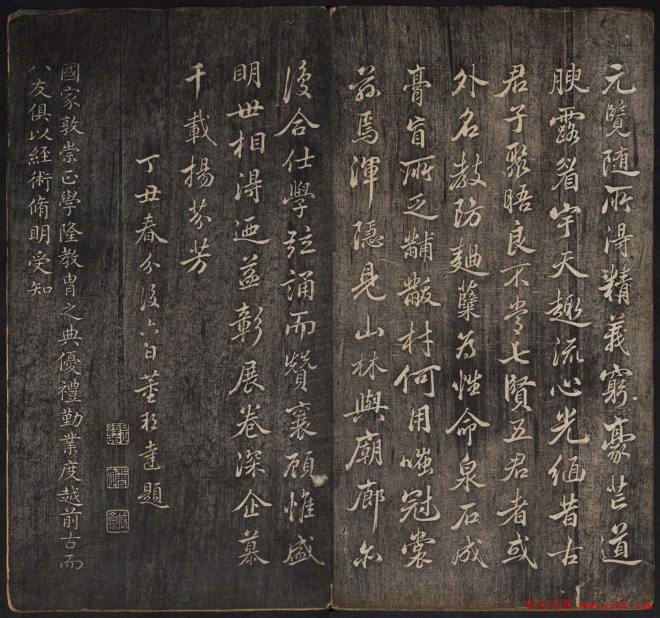 元覽随所得精義窮豪芒道
腴露眉宇天趣流心光緬昔古
君子聚晤良不常七賢五君者或
外名教防麹櫱為性命泉石成
膏肓所乏黼黻材何用嗤冠裳
焉渾隱見山林與廟廊尔
後合仕學弦誦而贊襄顧惟盛
明世相得迺益彰展卷深企慕
千載揚芬芳
丁丑春分後六日董邦達題
國家敦崇正學隆教胄之典優禮勤業度越前古而
八友俱以經術脩明受知